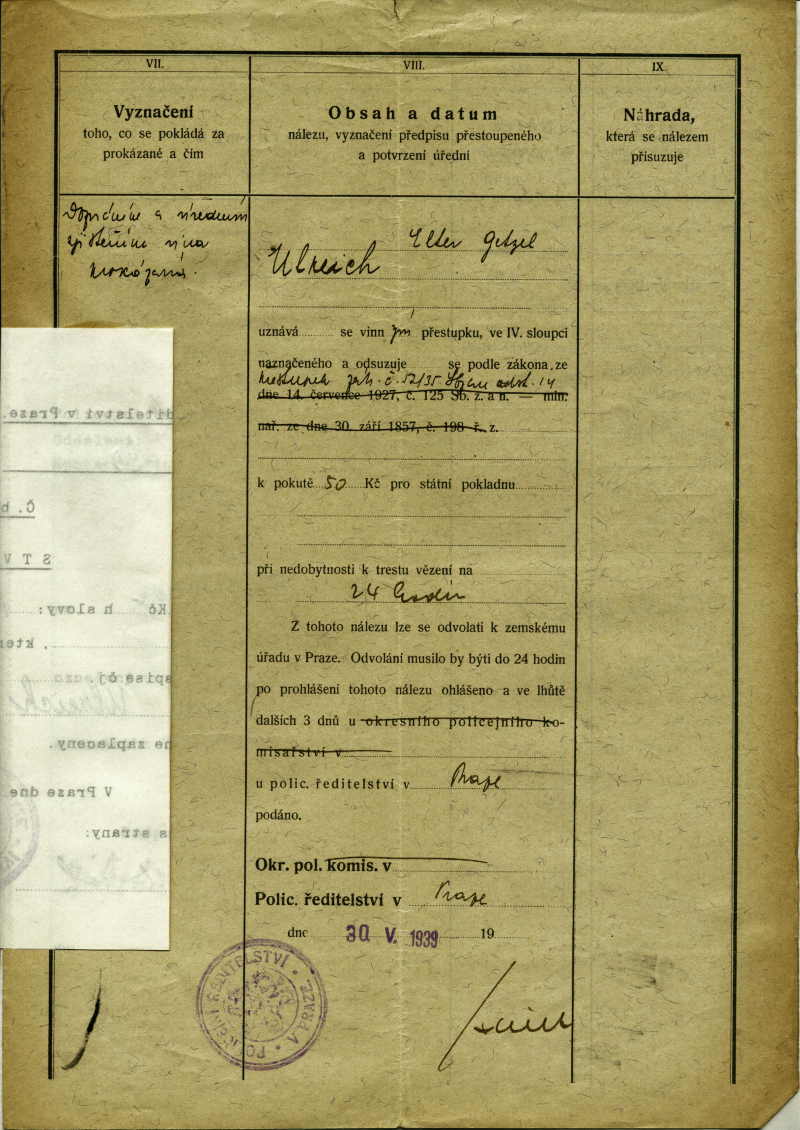 VII.
Vyznačení
toho, co se pokládá za
prokázané a čím
VIII.
Obsah a datum
nálezu, vyznačení předpisu přestoupeného
a potvrzení úřední
IX.
Náhrada,
která se nálezem
přisuzuje
a úředním
vina
Elter Getzel
Ulreich
uznává se vinn ým přestupku, ve IV. sloupci
naznačeného a odsuzuje se podle zákona ze
č. 52/35
dne 14. července 1927, č. 125 Sb. z. a n. — min.
nař. ze dne 30. září 1857, č. 198 ř. z.
k pokutě 50 Kč pro státní pokladnu
při nedobytnosti k trestu vězení na
24 hodin
Z tohoto nálezu lze se odvolati k zemskému
úřadu v Praze. Odvolání musilo by býti do 24 hodin
po prohlášení tohoto nálezu ohlášeno a ve lhůtě
dalších 3 dnů u okresního policejního ko-
misařství v
u polic. ředitelství v Praze
podáno.
Okr. pol. komis. v
Polic. ředitelství v Praze
dne 30 V. 1939 19
POLICEJNÍ ŘEDITELSTVÍ V PRAZE
ditelství v Praze.
Č.
S T V
Kč h slovy:
, kter
spise čj.
Ulreich
ne zaplaceny.
V Praze dne
s strany: